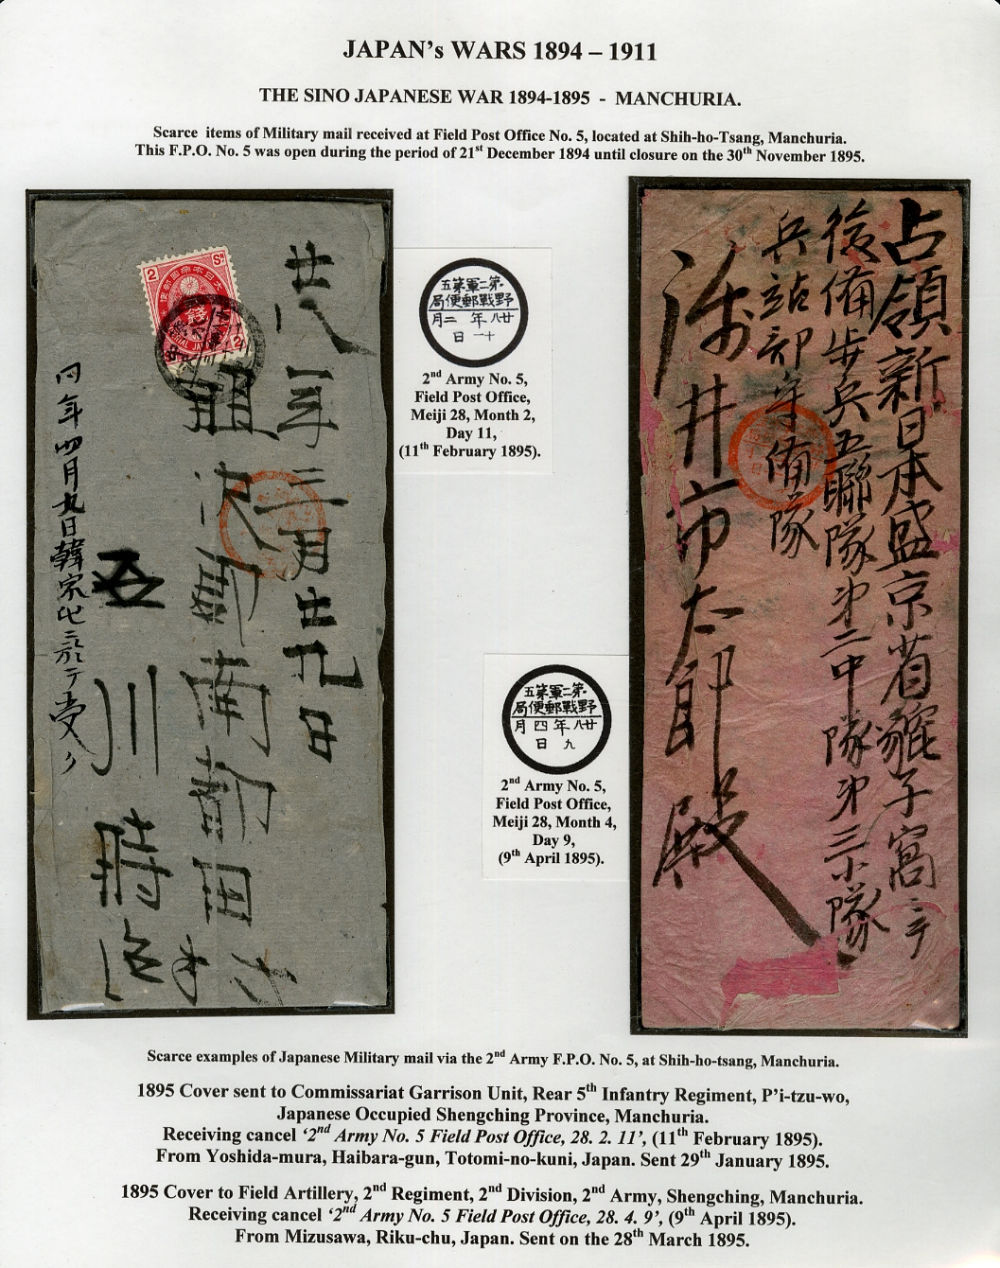 JAPAN's WARS 1894 – 1911
THE SINO JAPANESE WAR 1894-1895 - MANCHURIA.
Scarce items of Military mail received at Field Post Office No. 5, located at Shih-ho-Tsang, Manchuria.
This F.P.O. No. 5 was open during the period of 21st December 1894 until closure on the 30th November 1895.
廿八年三月廿九日
南部田
川
同年四月九日韓家屯ニ於テ受ク
2
Sn
2
第二軍第五
野戰郵便局
廿八年二月
十一日
2nd Army No. 5,
Field Post Office,
Meiji 28, Month 2,
Day 11,
(11th February 1895).
第二軍第五
野戰郵便局
廿八年四月
九日
2nd Army No. 5,
Field Post Office,
Meiji 28, Month 4,
Day 9,
(9th April 1895).
占領新日本盛京省貔子窩ニテ
後備歩兵五聯隊第二中隊第三小隊
兵站部守備隊
井市太郎殿
Scarce examples of Japanese Military mail via the 2nd Army F.P.O. No. 5, at Shih-ho-tsang, Manchuria.
1895 Cover sent to Commissariat Garrison Unit, Rear 5th Infantry Regiment, P'i-tzu-wo,
Japanese Occupied Shengching Province, Manchuria.
Receiving cancel '2nd Army No. 5 Field Post Office, 28. 2. 11', (11th February 1895).
From Yoshida-mura, Haibara-gun, Totomi-no-kuni, Japan. Sent 29th January 1895.
1895 Cover to Field Artillery, 2nd Regiment, 2nd Division, 2nd Army, Shengching, Manchuria.
Receiving cancel '2nd Army No. 5 Field Post Office, 28. 4. 9', (9th April 1895).
From Mizusawa, Riku-chu, Japan. Sent on the 28th March 1895.